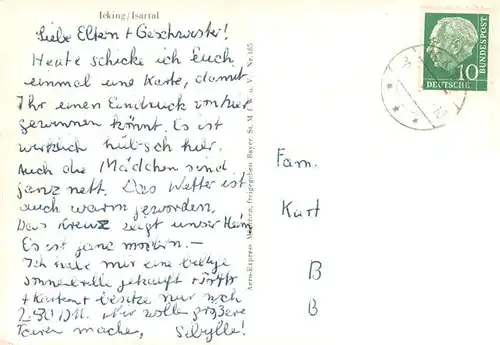 Icking/Isartal
Liebe Eltern + Geschwister!
Heute schicke ich Euch
einmal eine Karte, damit
Ihr einen Eindruck von hier
gewinnen könnt. Es ist
wirklich hübsch hier.
Auch die Mädchen sind
ganz nett. Das Wetter ist
auch warm geworden.
Das Kreuz zeigt unser Heim
Es ist ganz modern. –
Ich habe mir eine
Sonnenbrille gekauft
+ Karten + besitze nur noch
2.50 DM. Wir wollen größere
Touren machen, Sibylle!
Aero-Express München, freigegeben Bayer. St. M. f. W. u. V. Nr. 185
DEUTSCHE BUNDESPOST
10
Fam.
Kurt
B
B